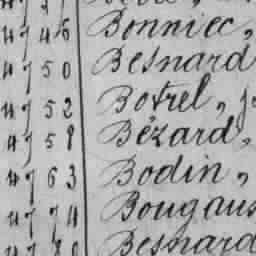 4746 Bonniec,
4750 Besnard
4752 Botrel,
4758 Bézard,
4763 Bodin,
4774 Bougaus
Besnard